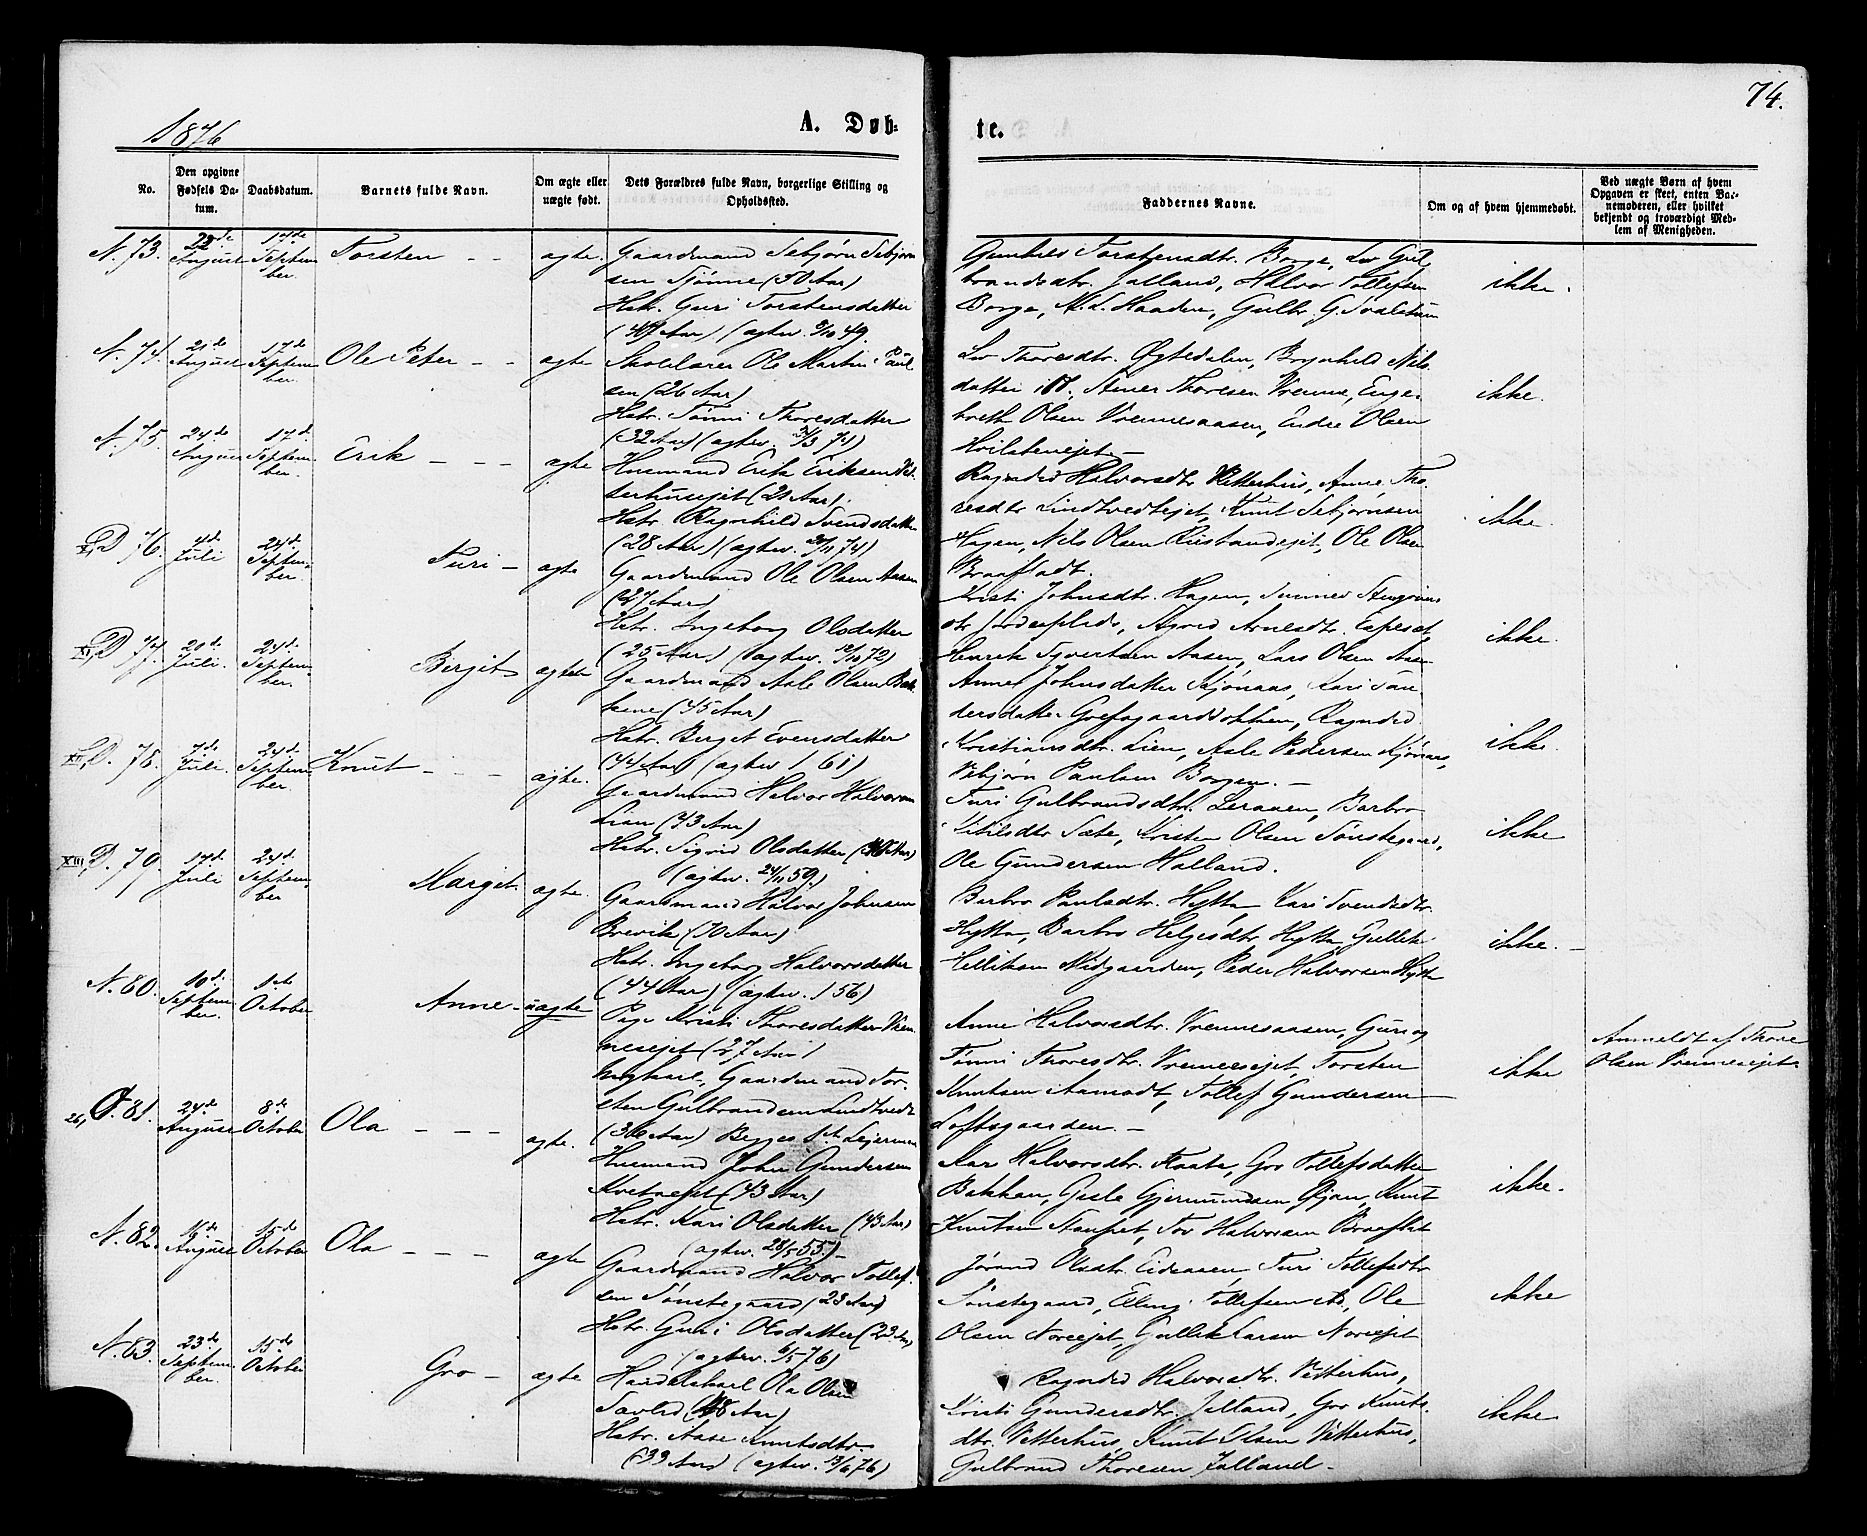 74.
1876
A. Døb-
te.
No.
Den opgivne Fødsels Da-tum.
Daabsdatum.
Barnets fulde Navn.
Om ægte eller uægte født.
Dets Forældres fulde Navn, borgerlige Stilling og Opholdssted.
Faddernes Navne.
Om og af hvem hjemmedøbt.
Ved uægte Børn af hvem Opgaven er skeet, enten Bar-nemoderen, eller hvilket bekjendt og troværdigt Med-lem af Menigheden.
N. 73.
August
17de Septem ber.
Torsten - -
ægte.
Gaardmand Sebjørn Sebjørn
sen Tjønne (50 Aar)
Hstr. Guri Torstensdatter
(47 Aar) (ægtev. 49.
Torstensdtr. Borge, Liv Gul
brandsdtr. Jalland, Halvor Tollefsen
Borge,
ikke.
N. 74.
21de August
17de Septem ber.
Ole Peter - -
ægte
Skolelærer Ole Martin Paul
sen (26 Aar)
Hstr. Tønni Thoresdatter
(32 Aar) (ægtev. 74)
Liv Thoresdtr. Øgtedalen, Bergnhild Nils
datter Thoresen Vrenne, Enge-
breth Olsen Vrennesaasen, Endre Olsen
ikke.
N. 75.
24de August
17de Septem ber.
Erik - - -
ægte
Husmand Erik Eriksen Vet
terhusejet (21 Aar).
Hstr. Ragnhild Svendsdatter
(28 Aar) (ægtev. 74)
Ragndid Halvorsdtr. Vetterhus, Anne Tho
resdtr Lindtvedtejet, Knut Sebjørnsen
Hagen, Nils Olsen Ole Olsen
Braafladt.
ikke.
X, D 76.
4de Juli
24de Septem ber.
Turi -
ægte
Gaardmand Ole Olsen Aasen
(27 Aar)
Hstr. Ingeborg Olsdatter
(25 Aar) (ægtev. 12/10 72)
Kristi Johnsdtr. Hagen,
Aagot Arnesdtr. Espeset
Henrik Syvertsen Aasen, Lars Olsen Aasen
ikke.
XI, D 77.
20de Juli.
24de Septem ber.
Bergit
ægte
Gaardmand Asle Olsen Bak
kene (45 Aar)
Hstr. Berget Evensdatter
(44 Aar) (ægtev 1 61)
Anne Johnsdatter Kjønaas, Kari San
dersdatter Ragndid
Kristiansdtr. Lien, Asle Pedersen Kjønaas,
Vebjørn Paulsen Borgen. -
ikke.
XII, D. 78.
7de Juli.
24de Septem ber
Knut - - -
ægte.
Gaardmand Halvor Halvorsen
Lien (43 Aar)
Hstr. Sigrid Olsdatter
(ægtev. 24/11 59.)
Turi Gulbrandsdtr. Leraaen, Barbro
Kittilsdtr Sæte, Kristen Olsen Sønstegaard,
Ole Gundersen Halland.
ikke
XIII, D. 79.
17de Juli
24de Septem ber
Margit
ægte.
Gaardmand Halvor Johnsen
Brevik (70 Aar)
Hstr. Ingeborg Halvorsdatter
(44 Aar) (ægtev. 1 56)
Barbro Paulsdtr. Hytta Kari Svendsdtr.
Hytta, Barbro Helgesdtr. Hytta, Gullik
Helliksen Nedgaarden, Peder Halvorsen Hytta
ikke. -
N. 80.
10de Septem ber.
1ste October
Anne -
uægte
Pige Kristi Thoresdatter Vren
nesejet (27 Aar)
Ungkarl, Gaardmand Tor-
sten Gulbrandsen Lindtvedt
(36 Aar) Begges 1st Lejermaal
Anne Halvorsdtr. Vrennesaasen, Guri og
Tønni Thoresdtr. Vrennesejet, Torsten
Knutsen Aamodt, Tollef Gundersen
Loftsgaarden. -
ikke
Anmeldt af Thore
Olsen Vrennesejet.
26, O. 81.
24de August
8de October
Ola - - -
ægte.
Husmand John Gundersen
(43 Aar)
Hstr. Kari Olsdatter (43 Aar)
(ægtev. 28/5 55.) -
Kar Halvorsdtr. Flaata, Gro Tollefsdatter
Bakken, Gisle Gjermundsen Øyan, Knut
Knutsen Tov Halvorsen Braaflat
ikke.
N. 82.
August
15de October
Ola - - -
ægte
Gaardmand Halvor Tollef-
sen Sønstegaard (23 Aar)
Hstr. Guri Olsdatter (23 Aar)
(ægtev. 6/5 76)
Jørand Olsdtr. Eideaaen, Turi Tollefsdtr
Sønstegaard, Elling Tollefsen Ole
Olsen Noreejet, Gullik Larsen Noreejet
ikke
N. 83.
23de Septem ber.
15de October
Gro -
ægte
Handelskarl Ola Olsen
(48 Aar)
Hstr. Aase Knutsdtr.
(33 Aar) (ægtev. 13/6 76)
Ragndid Halvorsdtr. Vetterhus,
Kristi Gundersdtr. Jalland, Gro Knuts-
dtr. Vetterhus, Knut Olsen Vetterhus,
Gulbrand Thoresen Jalland -
ikke